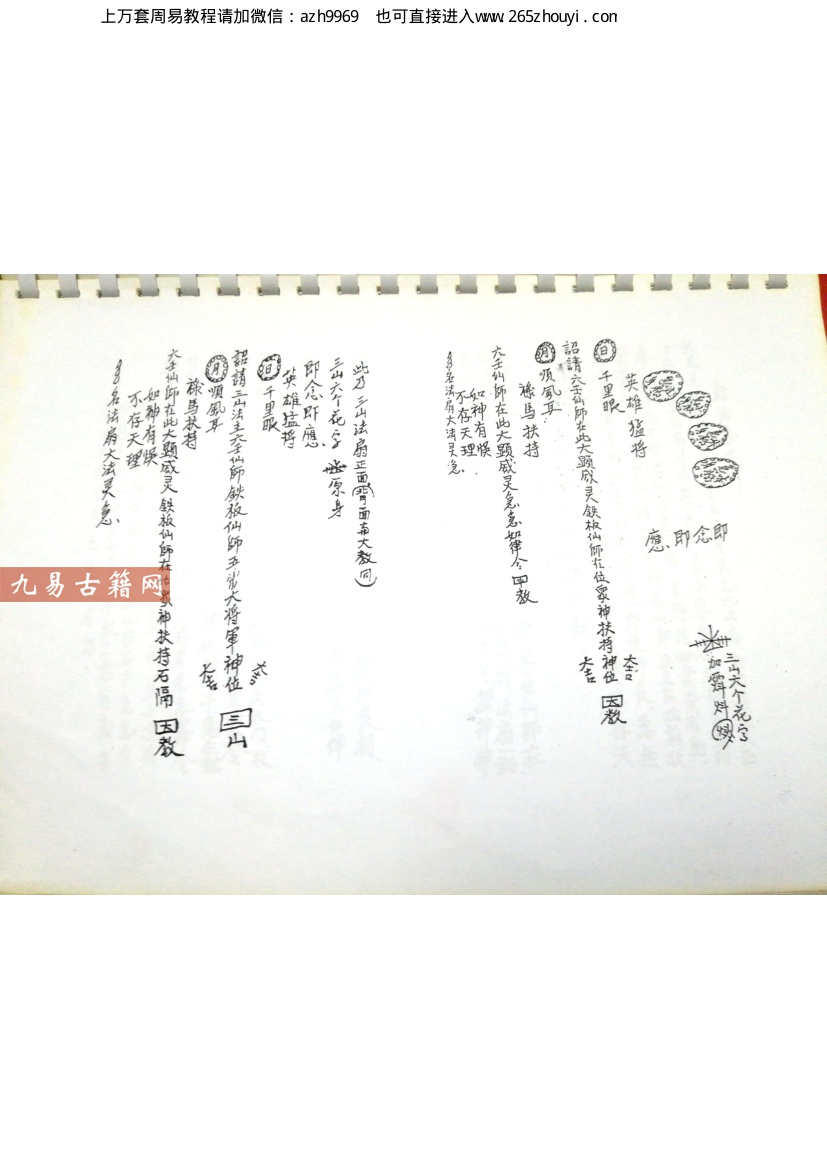 上万套周易教程请加微信：azh9969 也可直接进入www.265zhouyi.com
三山六个花字
加霹炓煥
即念即應
英雄猛将
日 千里眼
詔請六壬仙師在此大顕威灵鉄板仙師在位眾神扶持神位 大教
大吉
大吉
月 順風耳
祿馬扶持
六壬仙師在此大顕威灵急急如律令 教
如神有悞
不存天理
名法扇大法灵急
此乃三山法扇正面(背面南大教同)
三山六个花字 原身
即念即應
英雄猛将
日 千里眼
詔請三山法主六壬仙師鉄板仙師五雷大将軍神位 三山
大吉
大吉
月 順風耳
祿馬扶持
六壬仙師在此大顕威灵鉄板仙師在位眾神扶持石隔 大教
如神有悞
不存天理
名法扇大法灵急
九易古籍网